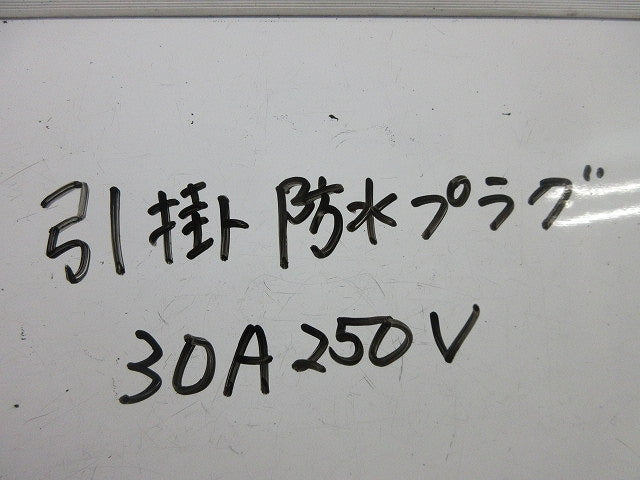 引掛防水プラグ
30A250V